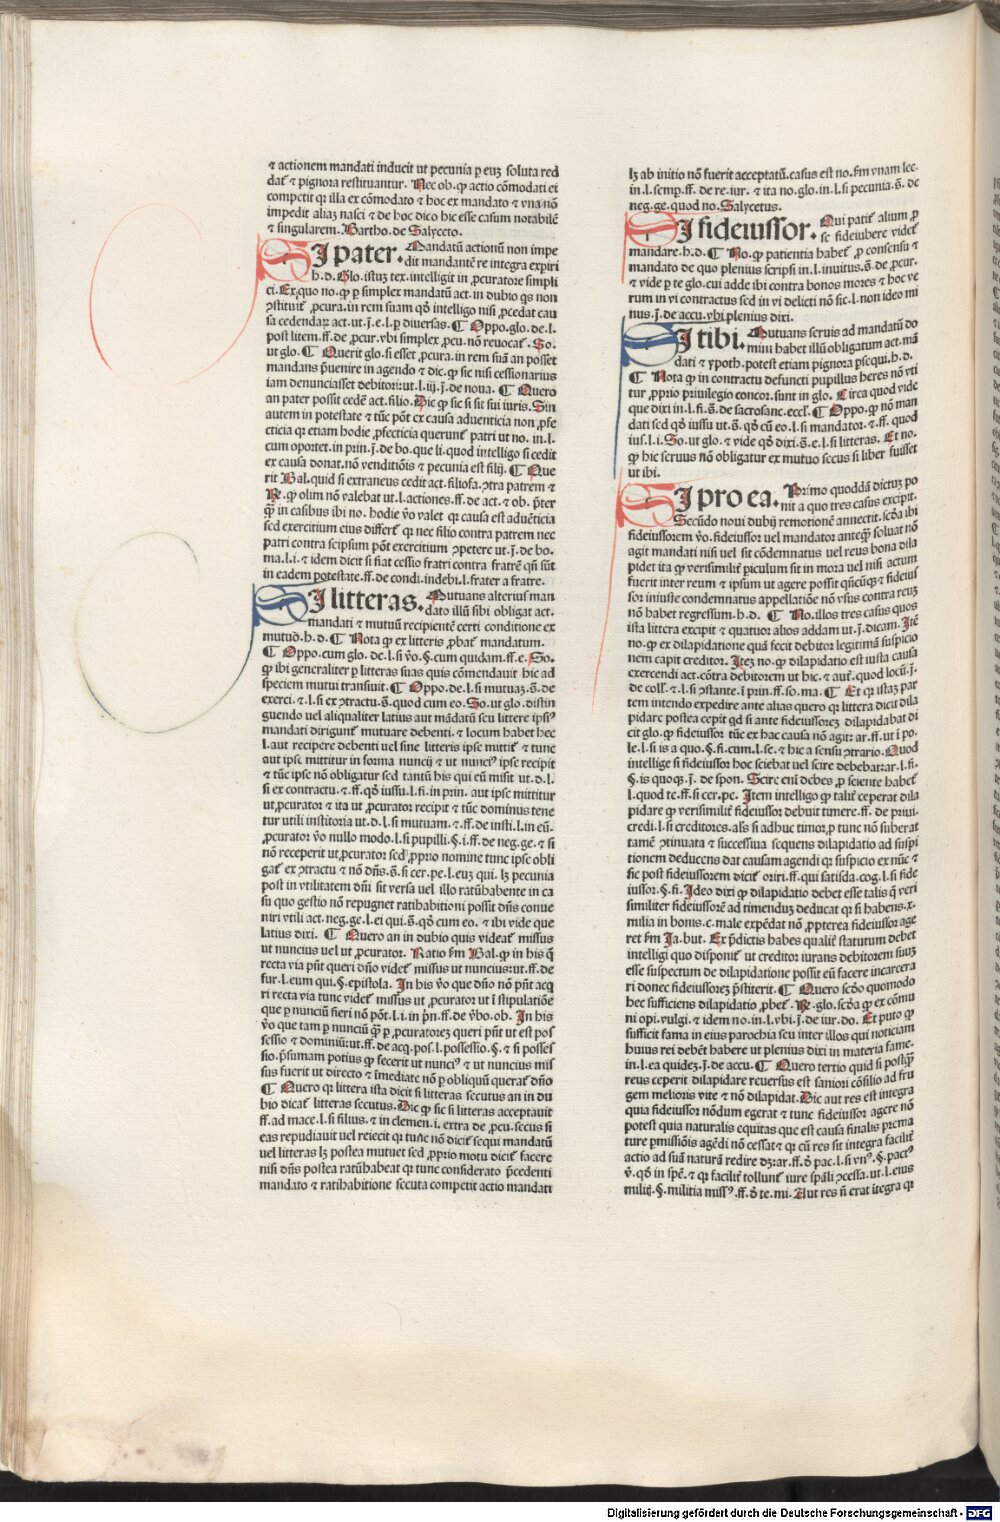 ⁊ actionem mandati inducit ut pecunia ꝑ euꝫ soluta red
dat̃ ⁊ pignora restituantur. Nec ob. ꝙ actio cõmodati ei
competit qꝛ illa ex cõmodato ⁊ hoc ex mandato ⁊ vna nõ
impedit aliaꝫ nasci ⁊ de hoc dico hic esse casum notabilẽ
⁊ singularem. Bartho. de Salyceto.
SI pater. Mandatũ actionũ non impe
dit mandantẽ re integra expiri
h. d. Glo. istuꝫ tex. intelligit in ꝓcuratore simpli
ci. Ex quo no. ꝙ ꝑ simplex mandatũ act. in dubio qs non
ꝯstituit̃ ꝓcura. in rem suam qd̾ intelligo nisi ꝓcedat cau
sa cedendaꝝ act. ut. j. e. l. ꝑ diuersas. ¶ Oppo. glo. de. l.
post litem. ff. de ꝓcur. vbi simplex ꝓcu. nõ reuocat̃. So.
ut glo. ¶ Querit glo. si esset ꝓcura. in rem suã an posset
mandans p̃uenire in agendo ⁊ dic. ꝙ sic nisi cessionarius
iam denunciasset debitori: ut. l. iij. j. de noua. ¶ Quero
an pater possit cedẽ act. filio. Dic ꝙ sic si sit sui iuris. Sin
autem in potestate ⁊ tũc põt ex causa aduenticia non ꝓfe
cticia qꝛ etiam hodie ꝓfecticia querunt̃ patri ut no. in. l.
cum oportet. in prin. j. de bo. que li. quod intelligo si cedit
ex causa donat. nõ venditiõis ⁊ pecunia est filij. ¶ Que
rit Bal. quid si extraneus cedit act. filiofa. ꝯtra patrem ⁊
℞. ꝙ olim nõ valebat ut. l. actiones. ff. de act. ⁊ ob. p̃ter
ꝙ̃ in casibus ibi no. hodie v̾o valet qꝛ causa est aduẽticia
sed exercitium eius differt̃ qꝛ nec filio contra patrem nec
patri contra seipsum põt exercitium ꝯpetere ut. j. de bo.
ma. l. i. ⁊ idem dicit si fiat cessio fratri contra fratrẽ qñ sũt
in eadem potestate. ff. de condi. indebi. l. frater a fratre.
SI litteras. Mutuans alterius man
dato illũ sibi obligat act.
mandati ⁊ mutuũ recipientẽ certi conditione ex
mutuo. h. d. ¶ Nota ꝙ ex litteris ꝓbat̃ mandatum.
¶ Oppo. cum glo. de. l. si v̾o. §. cum quidam. ff. e. So.
ꝙ ibi generaliter ꝑ litteras suas quis cõmendauit hic ad
speciem mutui transiuit. ¶ Oppo. de. l. si mutuaꝫ. s̃. de
exerci. ⁊. l. si ex ꝯtractu. s̃. quod cum eo. So. ut glo. distin
guendo uel aliqualiter latius aut mãdatũ seu littere ipsiꝰ
mandati dirigunt̃ mutuare debenti. ⁊ locum habet hec
l. aut recipere debenti uel sine litteris ipse mittit̃ ⁊ tunc
aut ipse mittitur in forma nuncij ⁊ ut nunciꝰ ipse recipit
⁊ tũc ipse nõ obligatur sed tantũ his qui eũ misit ut. d. l.
si ex contractu. ⁊. ff. qd̾ iussu. l. fi. in prin. aut ipse mittitur
ut ꝓcurator ⁊ ita ut ꝓcurator recipit ⁊ tũc dominus tene
tur utili institoria ut. d. l. si mutuam. ⁊. ff. de insti. l. in eũ.
ꝓcurator v̾o nullo modo. l. si pupilli. §. i. ff. de neg. ge. ⁊ si
nõ receperit ut ꝓcurator sed ꝓprio nomine tunc ipse obli
gat̃ ex ꝯtractu ⁊ nõ dñs. s̃. si cer. pe. l. euꝫ qui. lꝫ pecunia
post in vtilitatem dñi sit versa uel illo ratũhabente in ca
su quo gestio nõ repugnet ratihabitioni possit dñs conue
niri vtili act. neg. ge. l. ei qui. s̃. qd̾ cum eo. ⁊ ibi vide que
latius dixi. ¶ Quero an in dubio quis videat̃ missus
ut nuncius uel ut ꝓcurator. Ratio s̾m Bal. ꝙ in his q̃
recta via pñt queri dño videt̃ missus ut nuncius: ut. ff. de
fur. l. eum qui. §. epistola. In his v̾o que dño nõ pñt acq
ri recta via tunc videt̃ missus ut ꝓcurator ut ĩ stipulatiõe
que ꝑ nunciũ fieri nõ põt. l. i. in p̃n. ff. de v̾bo. ob. In his
v̾o que tam ꝑ nunciũ ꝙ̃ ꝑ ꝓcuratoreꝫ queri pñt ut est pos
sessio ⁊ dominiũ: ut. ff. de acq. pos. l. possessio. §. ⁊ si posses
sio. p̃sumam potius ꝙ fecerit ut nunciꝰ ⁊ ut nuncius mis
sus fuerit ut directo ⁊ ĩmediate nõ ꝑ obliquũ querat̃ dño
¶ Quero qꝛ littera ista dicit si litteras secutus an in du
bio dicat̃ litteras secutus. Dic ꝙ sic si litteras acceptauit
ff. ad mace. l. si filius. ⁊ in clemen. i. extra de ꝓcu. secus si
eas repudiauit uel reiecit qꝛ tunc nõ dicit̃ sequi mandatũ
uel litteras lꝫ postea mutuet sed ꝓprio motu dicit̃ facere
nisi dñs postea ratũhabeat qꝛ tunc considerato p̃cedenti
mandato ⁊ ratihabitione secuta competit actio mandati
lꝫ ab initio nõ fuerit acceptatũ. casus est no. s̾m vnam lec.
in. l. semp. ff. de re. iur. ⁊ ita no. glo. in. l. si pecunia. s̃. de
neg. ge. quod no. Salycetus.
SI fideiussor. Qui patit̃ alium ꝓ
se fideiubere videt̃
mandare. h. d. ¶ No. ꝙ patientia habet̃ ꝓ consensu ⁊
mandato de quo plenius scripsi in. l. inuitus. s̃. de ꝓcur.
⁊ vide ꝑ te glo. cui adde ibi contra bonos mores ⁊ hoc ve
rum in vi contractus sed in vi delicti nõ sic. l. non ideo mi
nus. j. de accu. vbi plenius dixi.
SI tibi. Mutuans seruis ad mandatũ do
mini habet illũ obligatum act. mã
dati ⁊ ypoth. potest etiam pignora ꝓsequi. h. d.
¶ Nota ꝙ in contractu defuncti pupillus heres nõ vti
tur ꝓprio priuilegio concor. sunt in glo. Circa quod vide
que dixi in. l. fi. s̃. de sacrosanc. eccl. ¶ Oppo. ꝙ nõ man
dati sed qd̾ iussu ut. s̃. qd̾ cũ eo. l. si mandator. ⁊. ff. quod
ius. l. i. So. ut glo. ⁊ vide qd̾ dixi. s̃. e. l. si litteras. Et no.
ꝙ hic seruus nõ obligatur ex mutuo secus si liber fuisset
ut ibi.
SI pro ea. Primo quoddã dictuꝫ po
nit a quo tres casus excipit.
Secũdo noui dubij remotionẽ annectit. scd̾a ibi
fideiussorem v̾o. fideiussor uel mandator anteq̃ soluat nõ
agit mandati nisi uel sit cõdemnatus uel reus bona dila
pidet ita ꝙ verisimilit̃ piculum sit in mora uel nisi actum
fuerit inter reum ⁊ ipsum ut agere possit qñcũqꝫ ⁊ fideius
sor iniuste condemnatus appellatiõe nõ vsus contra reuꝫ
nõ habet regressum. h. d. ¶ No. illos tres casus quos
ista littera excipit ⁊ quatuor alios addam ut. j. dicam. Itẽ
no. ꝙ ex dilapidatione quã fecit debitor legitimã suspicio
nem capit creditor. Iteꝫ no. ꝙ dilapidatio est iusta causa
exercendi act. cõtra debitorem ut hic. ⁊ aut̃. quod locũ. j.
de coll. ⁊. l. si ꝯstante. ĩ prin. ff. so. ma. ¶ Et qꝛ istaꝫ par
tem intendo expedire ante alias quero qꝛ littera dicit dila
pidare postea cepit qd si ante fideiussoreꝫ dilapidabat di
cit glo. ꝙ fideiussor tũc ex hac causa nõ agit: ar. ff. ut ĩ po.
le. l. si is a quo. §. fi. cum. l. se. ⁊ hic a sensu ꝯtrario. Quod
intellige si fideiussor hoc sciebat uel scire debebat: ar. l. fi.
§. is quoqꝫ. j. de spon. Scire eni debes ꝓ sciente habet̃
l. quod te. ff. si cer. pe. Item intelligo ꝙ talit̃ ceperat dila
pidare ꝙ verisimilit̃ fideiussor debuit timere. ff. de priui.
credi. l. si creditores. als̃ si adhuc timor ꝑ tunc nõ suberat
tamẽ ꝯtinuata ⁊ successiua sequens dilapidatio ad suspi
tionem deducens dat causam agendi qꝛ suspicio ex nũc ⁊
sic post fideiussorem dicit̃ oriri. ff. qui satisda. cog. l. si fide
iussor. §. fi. Ideo dixi ꝙ dilapidatio debet esse talis q̃ veri
similiter fideiussorẽ ad timenduꝫ deducat qꝛ si habens. x.
milia in bonis. c. male expẽdat nõ ꝓpterea fideiussor age
ret s̾m Ja. but. Ex p̃dictis habes qualit̃ statutum debet
intelligi quo disponit̃ ut creditor iurans debitorem suuꝫ
esse suspectum de dilapidatione possit eũ facere incarcera
ri donec fideiussoreꝫ p̃stiterit. ¶ Quero scd̾o quomodo
hec sufficiens dilapidatio ꝓbet̃. ℞. glo. scd̾a ꝙ ex cõmu
ni opi. vulgi. ⁊ idem no. in. l. vbi. j. de iur. do. Et puto ꝙ
sufficit fama in eius parochia seu inter illos qui noticiam
huius rei debẽt habere ut plenius dixi in materia fame.
in. l. ea quideꝫ. j. de accu. ¶ Quero tertio quid si postꝙ̃
reus ceperit dilapidare reuersus est saniori cõsilio ad fru
gem melioris vite ⁊ nõ dilapidat. Dic aut res est integra
quia fideiussor nõdum egerat ⁊ tunc fideiussor agere nõn
potest quia naturalis equitas que est causa finalis p̃ema
ture ꝑmissiõis agẽdi nõ cessat ⁊ qꝛ cũ res sit integra facilit̃
actio ad suã naturã redire dꝫ: ar. ff. d̾ pac. l. si vnꝰ. §. pactꝰ
v̾. qd̾ in spẽ. ⁊ qꝛ facilit̃ tollunt̃ iure sp̃ali ꝯcessa. ut. l. eius
militj. §. militia missꝰ. ff. d̾ te. mi. Aut res ñ erat ĩtegra qꝛ
Digitalisierung gefördert durch die Deutsche Forschungsgemeinschaft - DFG